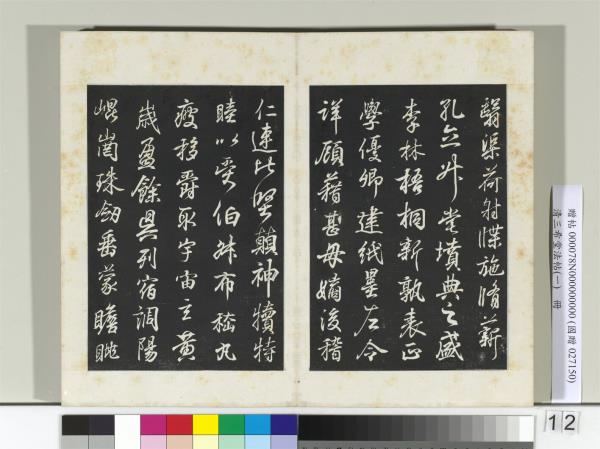 翳渠荷射牒施脩薪
孔升堂墳典之盛
李林梧桐新孰表正
學優卿建紙墨左令
詳顧藉甚毋嫡後稽
仁連比堅顛神犢特
睦以受伯叔布嵇丸
疲移爵取宇宙玄黃
歲盈餘具列宿調陽
崐崗珠劒番蒙瞻眺
贈帖 000078N000000000 (國贈 027150)
清三希堂法帖(一) 冊
12